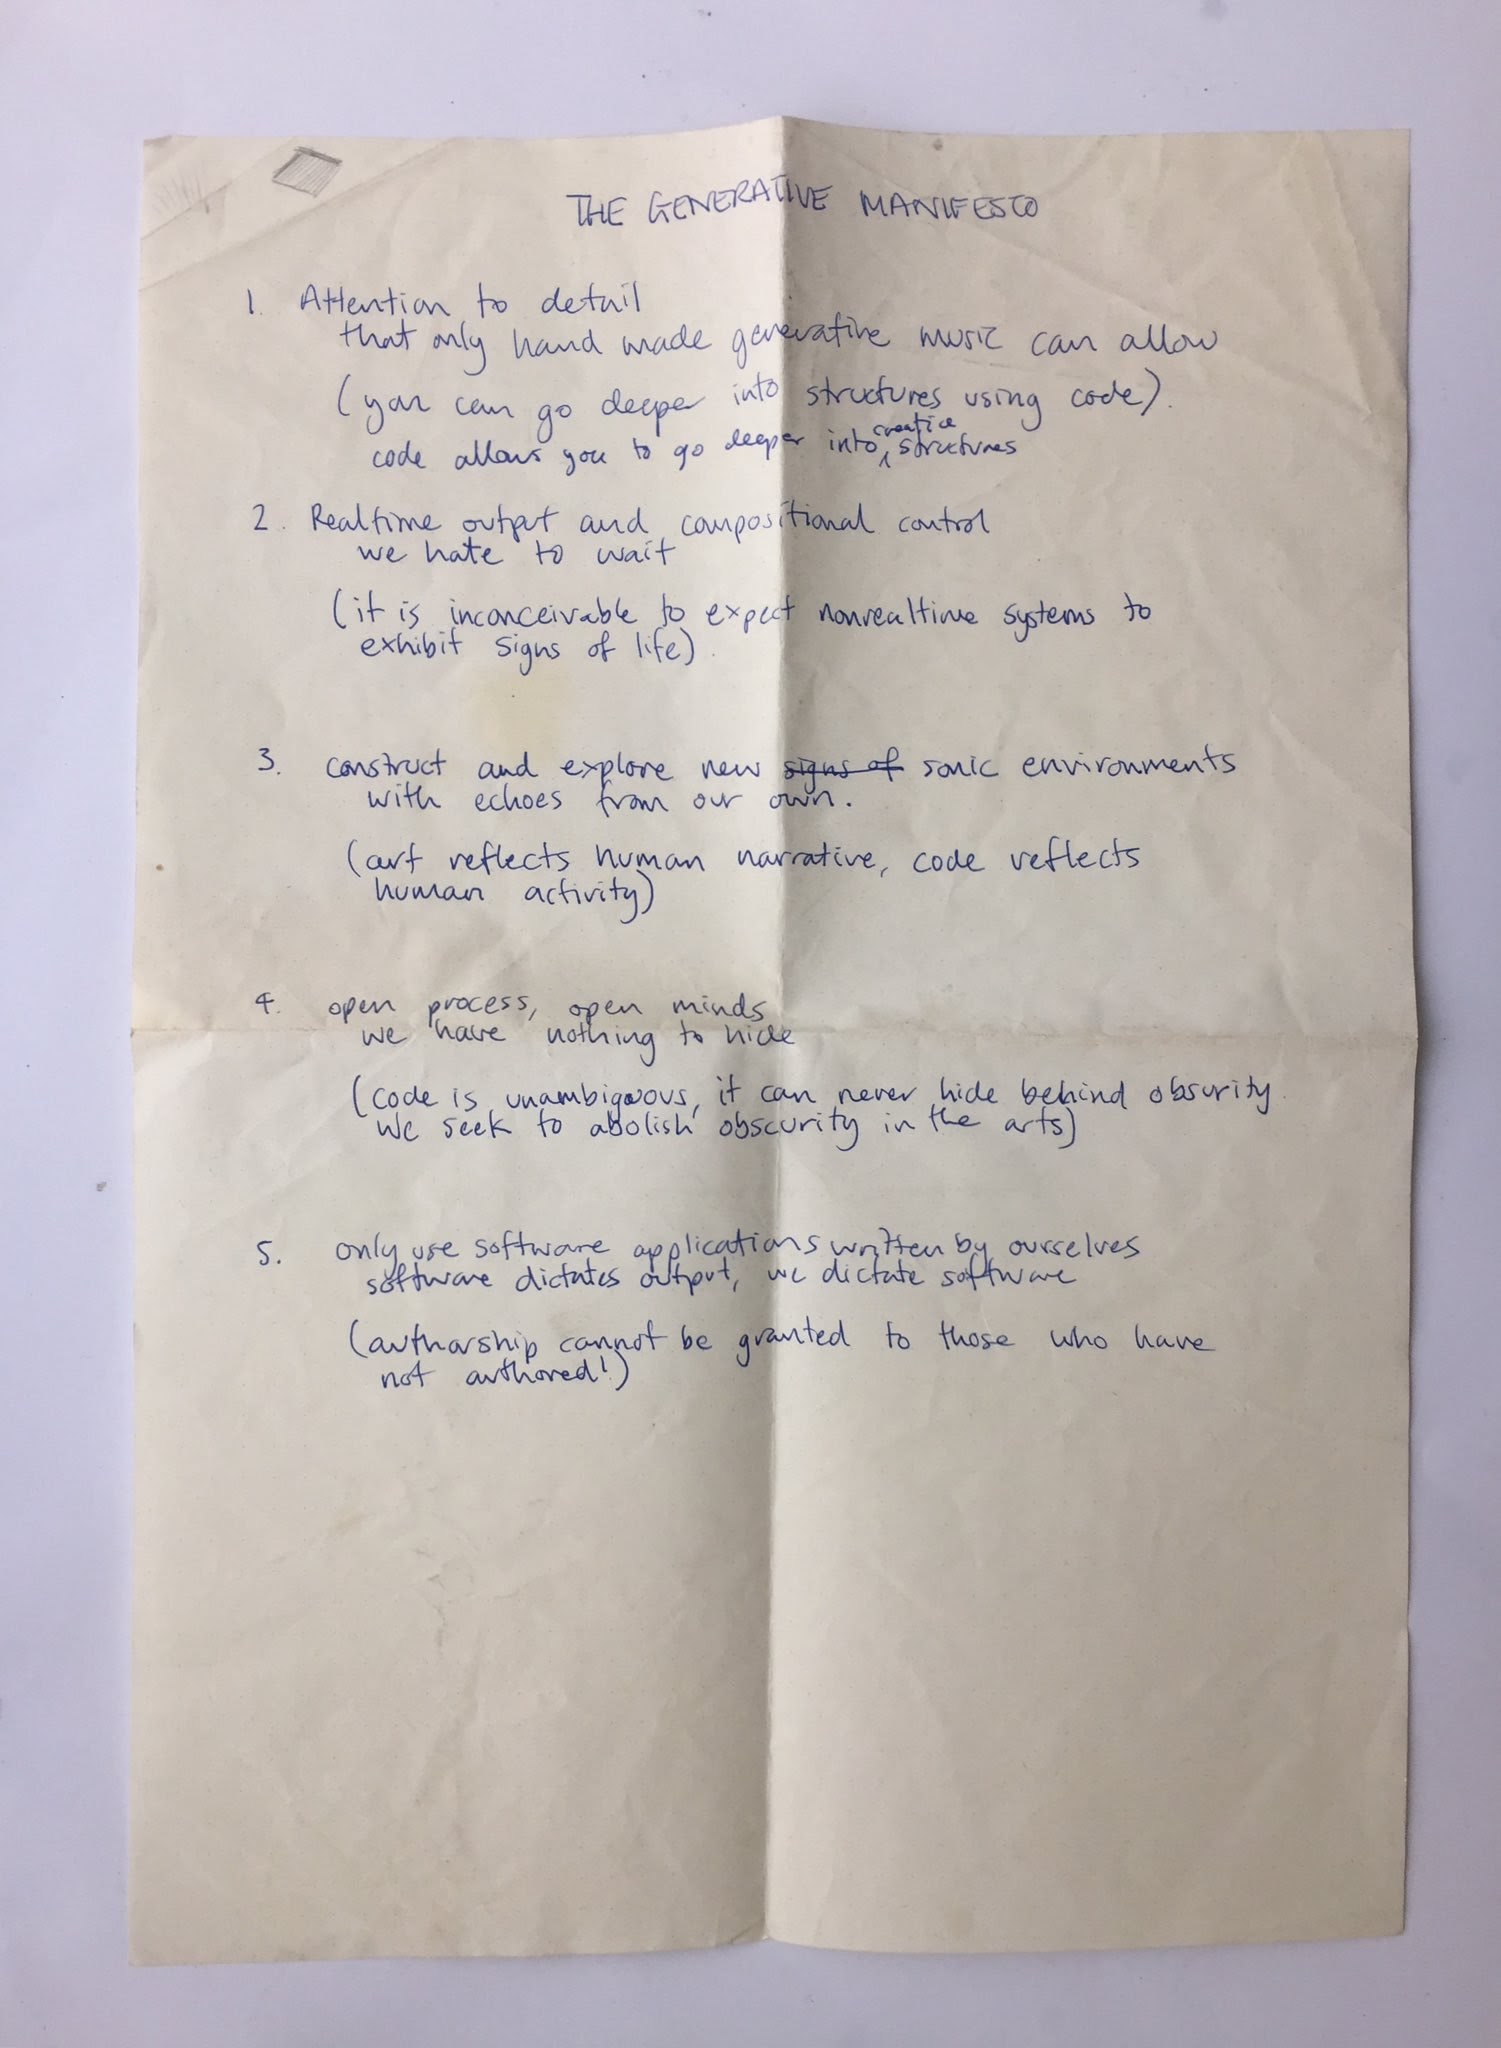 THE GENERATIVE MANIFESTO
1. Attention to detail
that only hand made generative music can allow
(you can go deeper into structures using code).
code allows you to go deeper into creative structures
2. Realtime output and compositional control
we hate to wait
(it is inconceivable to expect nonrealtime systems to
exhibit signs of life).
3. construct and explore new signs of sonic environments
with echoes from our own.
(art reflects human narrative, code reflects
human activity)
4. open process, open minds
we have nothing to hide
(code is unambiguous, it can never hide behind obsurity.
we seek to abolish obscurity in the arts)
5. only use software applications written by ourselves
software dictates output, we dictate software
(authorship cannot be granted to those who have
not authored!)